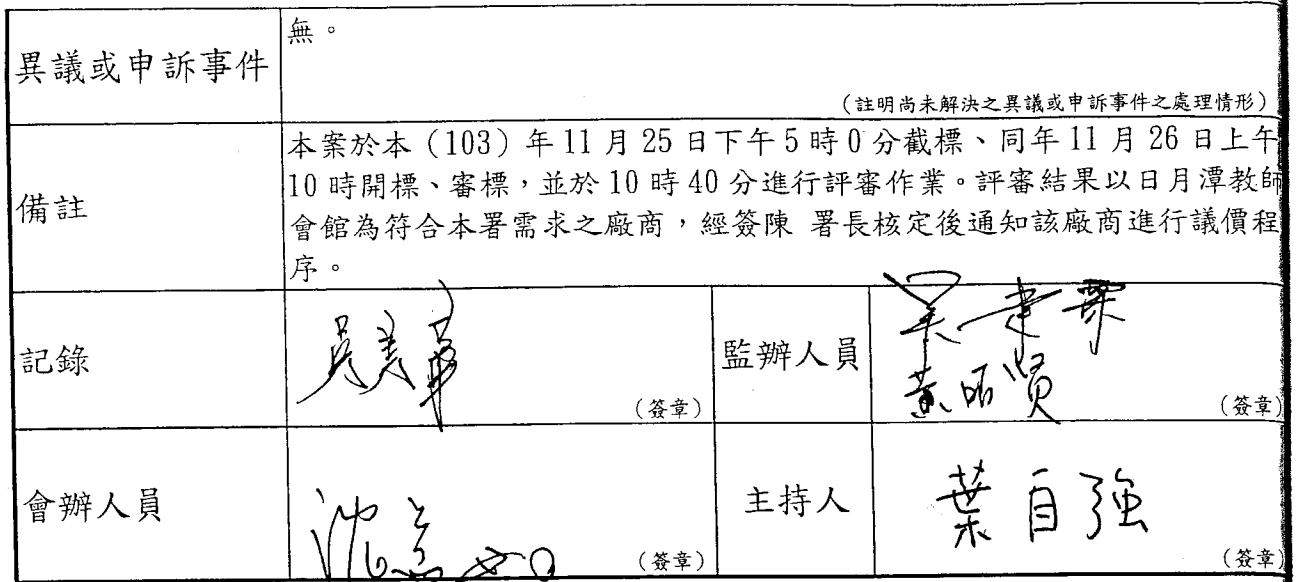 異議或申訴事件
無。
(註明尚未解決之異議或申訴事件之處理情形)
備註
本案於本(103)年11月25日下午5時0分截標、同年11月26日上午
10時開標、審標,並於10時40分進行評審作業。評審結果以日月潭教師
會館為符合本署需求之廠商,經簽陳 署長核定後通知該廠商進行議價程
序。
記錄
(簽章)
監辦人員
(簽章)
會辦人員
(簽章)
主持人
葉自強
(簽章)